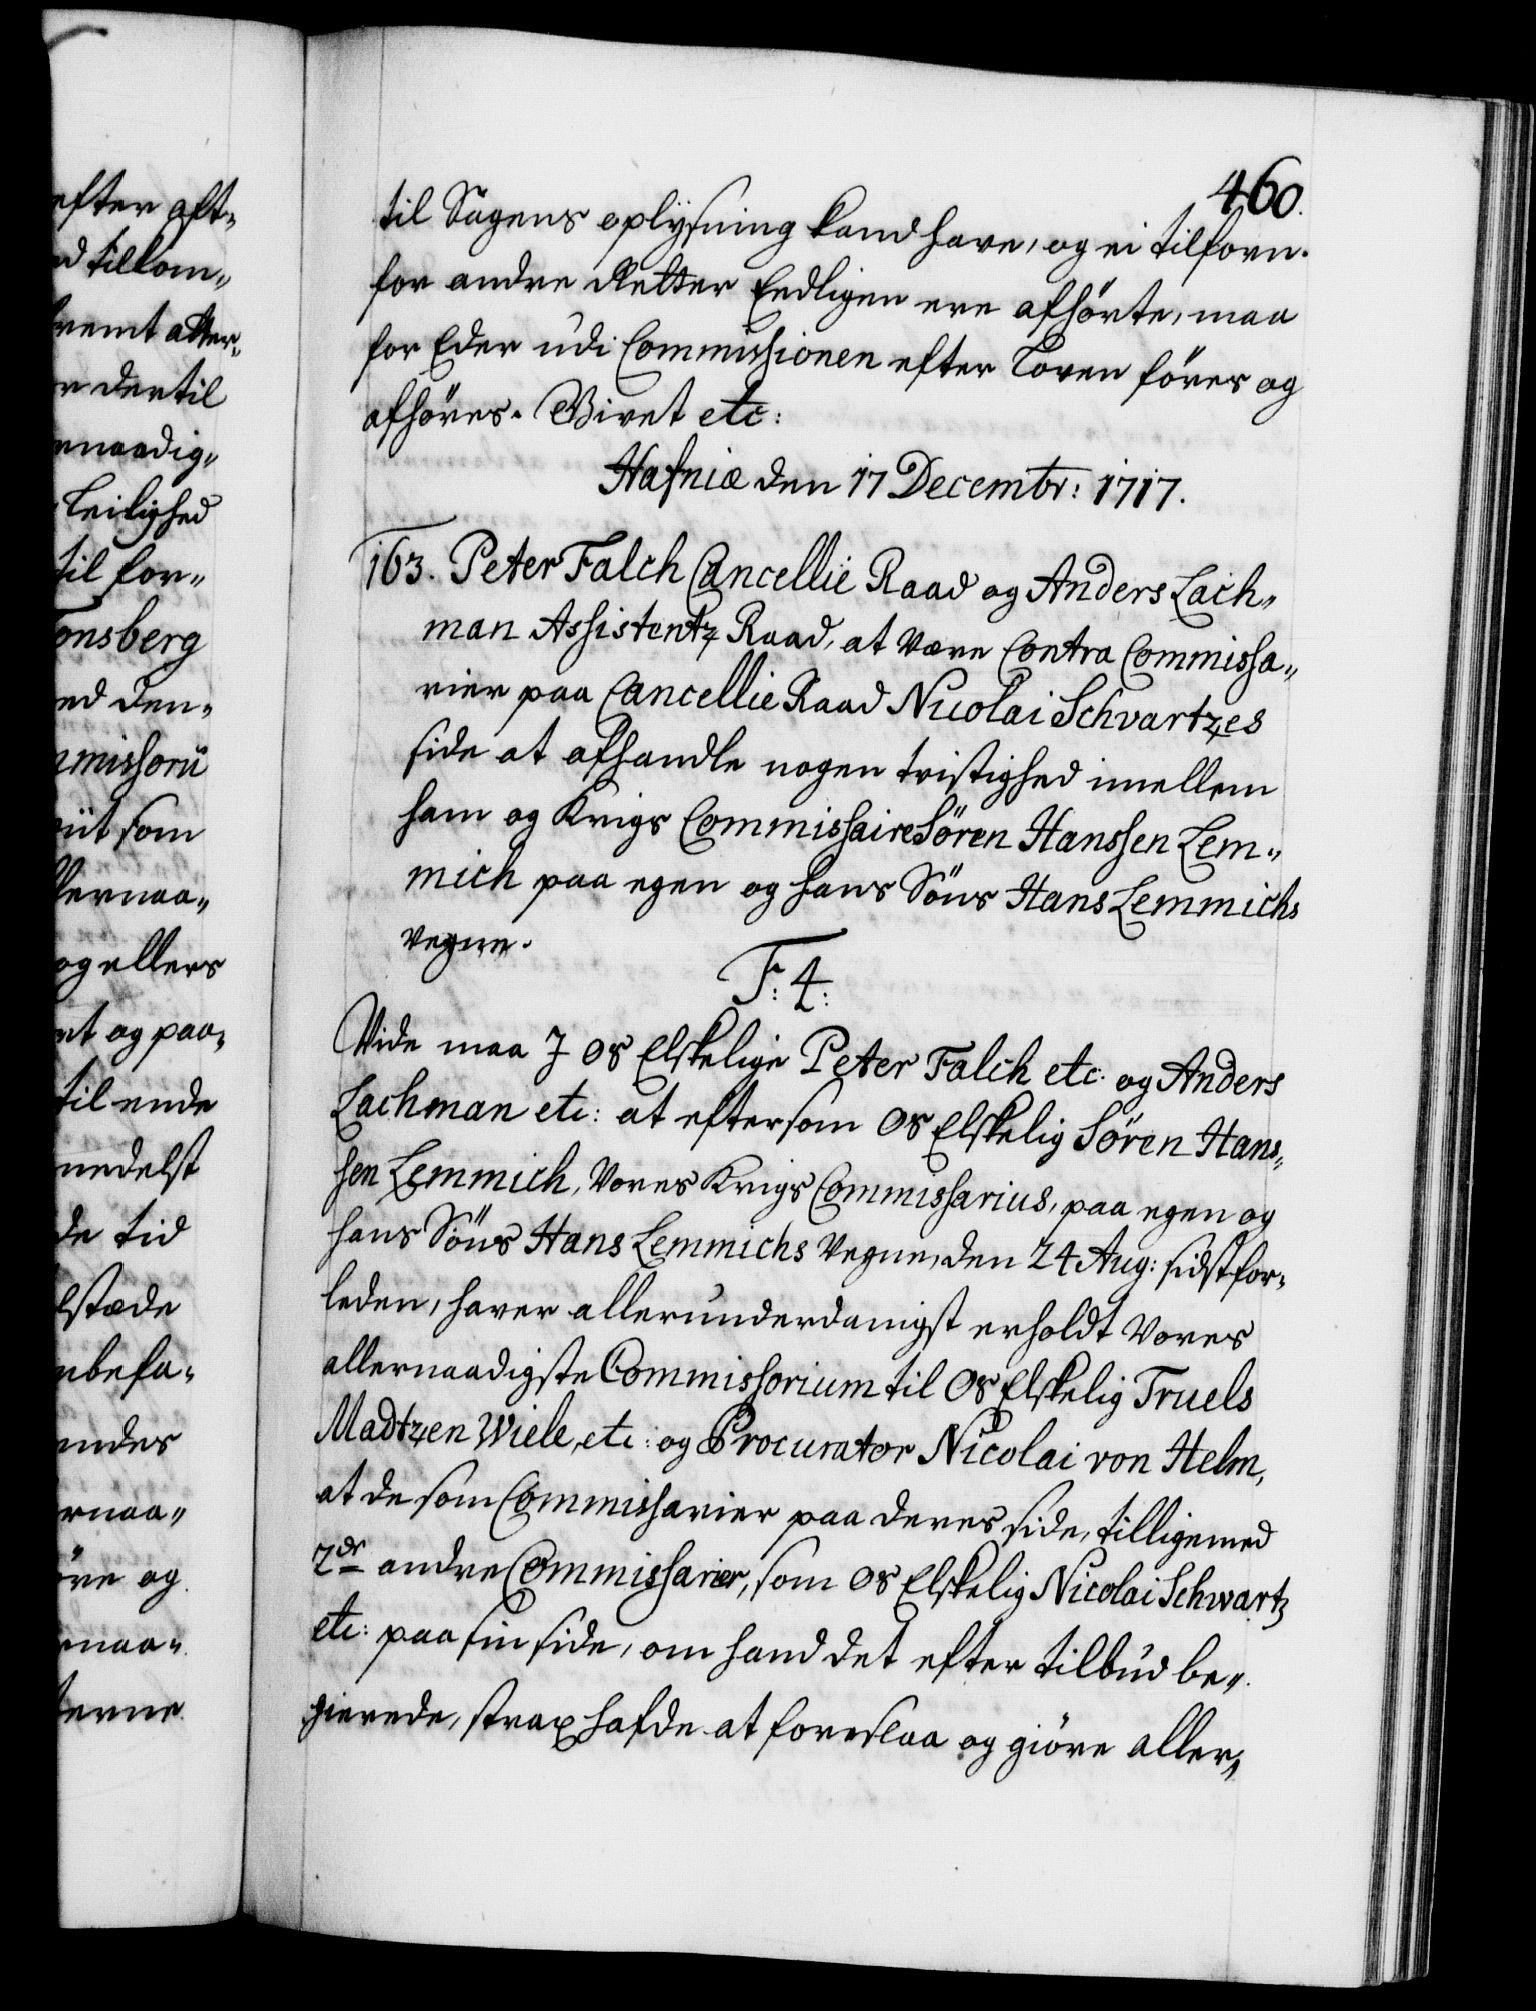 460.
til Sagens oplysning kand have, og ei tilforn.
for andre Retter Endligen ere afhörte, maa
for Eder udi Commissionen efter Loven föres og
afhöres. Givet etc:
Hafniæ den 17 Decembr: 1717.
163. Peter Falch Cancellie Raad og Anders Lach„
man Assistentz Raad, at være Contra Commissa„
rier paa Cancellie Raad Nicolai Schvartzes
side at afhandle nogen tvistighed imellem
ham og Krigs Commissaire Sören Hanssen Lem„
mich paa egen og hans Söns Hans Lemmichs
vegne.
F: 4:
Vide maa I os Elskelige Peter Falch etc: og Anders
Lachman etc: at eftersom os Elskelig Sören Hans„
sen Lemmich, Vores Krigs Commissarius, paa egen og
hans Söns Hans Lemmichs Vegne, den 24 Aug: sidstfor„
leden, haver allerunderdanigst erholdt Vores
allernaadigste Commissorium til os Elskelig Truels
Madtzen Wiele, etc: og Procurator Nicolai von Helm,
at de som Commissarier paa deres side, tilligemed
2de andre Commissarier, som os Elskelig Nicolai Schwartz
etc: paa sin side, om hand det efter tilbud be„
gierede, strax hafde at foreslaa og giöre aller„
efter aft„
d tilkom„
remt atter„
r dertil
rnaadig„
Leilighed
til for„
onsberg
ed den„
mmissoriu
iit som
llernaa„
og ellers
et og paa„
til ende
medelst
de tid
lstæde
nbefa„
endes
rnaa„
öre og
rnaa„
terne